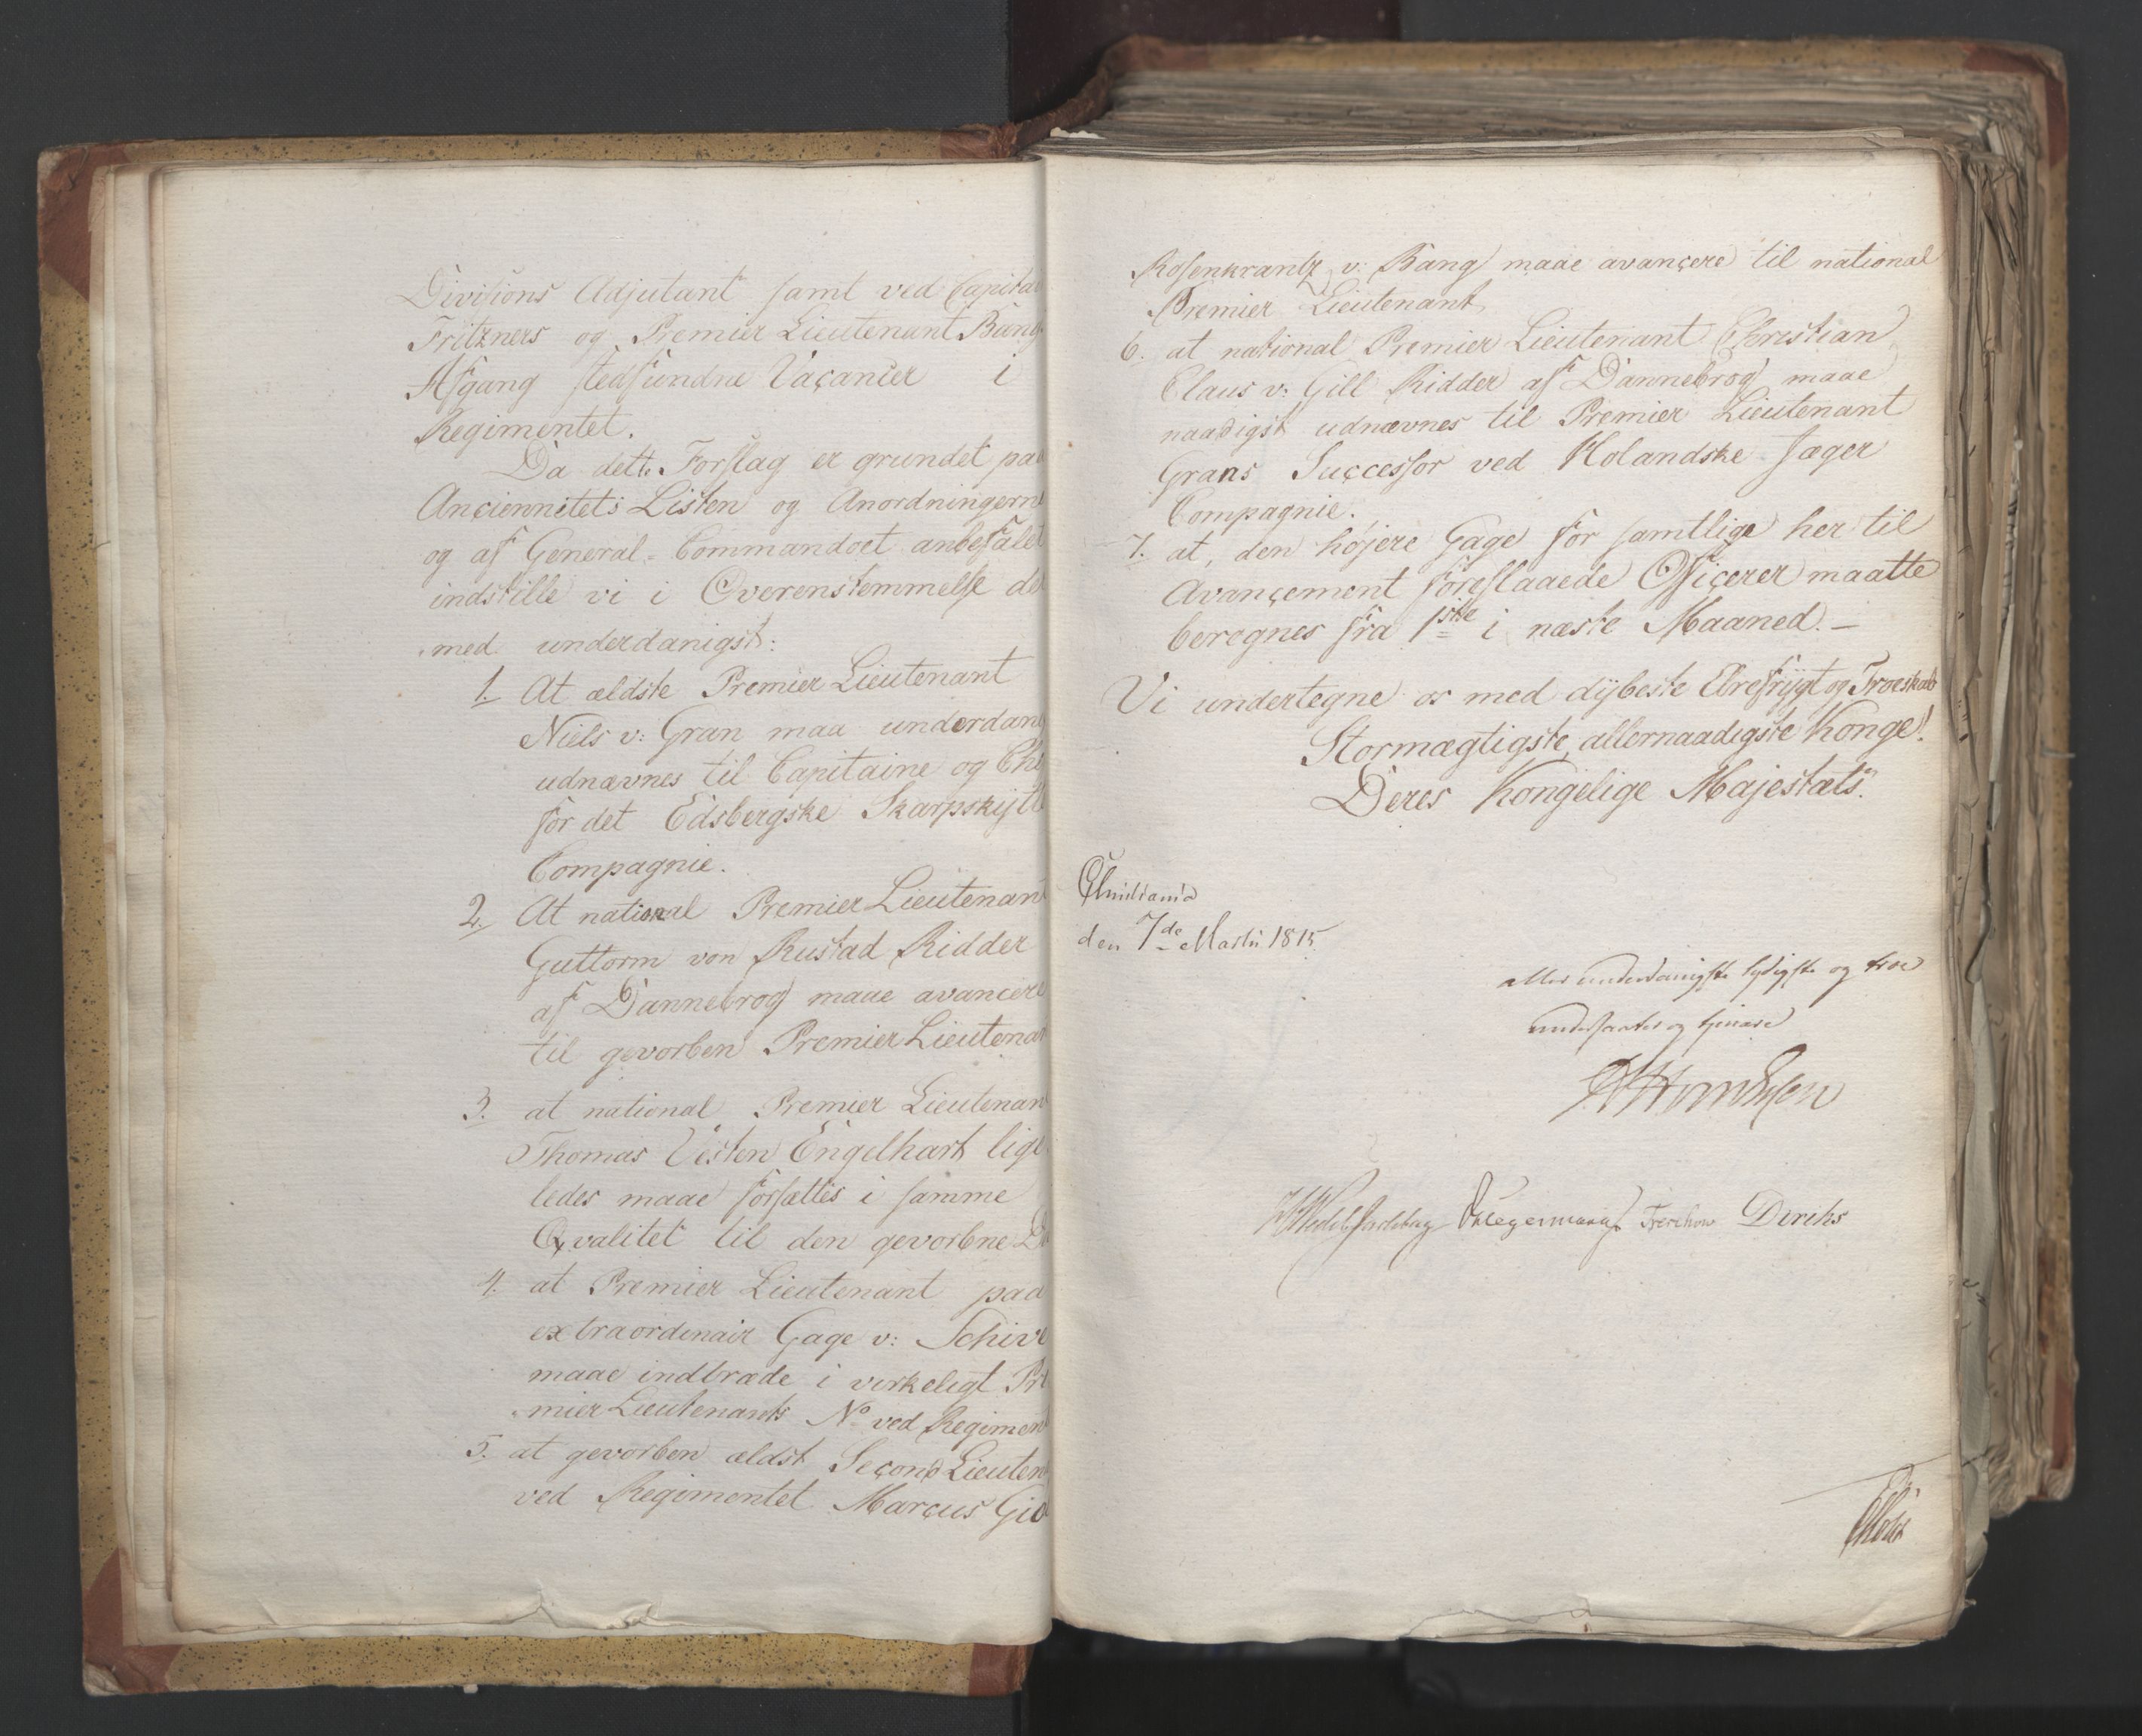 Divisions Adjutant samt ved Capita
Fritzners og Premier Lieutenant Bang
Afgang stedfundne Vacancer i
Regimentet.
Da dette Forslag er grundet paa
Anciennitets Listen og Anordningerne
og af General-Commandoet anbefalet
indstille vi i Overenstemmelse de
med underdanigst:
1. At ældste Premier Lieutenant
Niels v: Gran maa underdan
udnævnes til Capitaine og Che
for det Edsbergske Skarpskytt
Compagnie.
2. At national Premier Lieutenant
Guttorm von Rustad Ridder
af Dannebrog maae avancere
til gevorben Premier Lieutenan
3. at national Premier Lieutenan
Thomas Vesten Engelhart lige
ledes maae forsættes i samme
Qvalitet til den gevorbne
4. at Premier Lieutenant paa
extraordinair Gage v: Schive
maae indtræde i virkeligt Pre
mier Lieutenants No ved Regiment
5. at gevorben ældst Second Lieuten
ved Regimentet Marcus Gio
Rosenkrantz v: Bang maae avancere til national
Premier Lieutenant
6. at national Premier Lieutenant Christian
Claus v: Gill Ridder af Dannebrog maae
naadigst udnævnes til Premier Lieutenant
Grans Successor ved Holandske Jæger
Compagnie.
7. at, den højere Gage for samtlige her til
Avancement foreslaaede Officerer maatte
beregnes fra 1ste i næste Maaned. –
Vi undertegne os med dybeste Ærefrygt og Troeskab
Stormægtigste, allernaadigste Konge!
Deres Kongelige Majestæts.
Christiania
den 7de Martii 1815
aller underdanigste lydigste og troe
undersaatter og tjenere
Hegermann Treschow Diriks